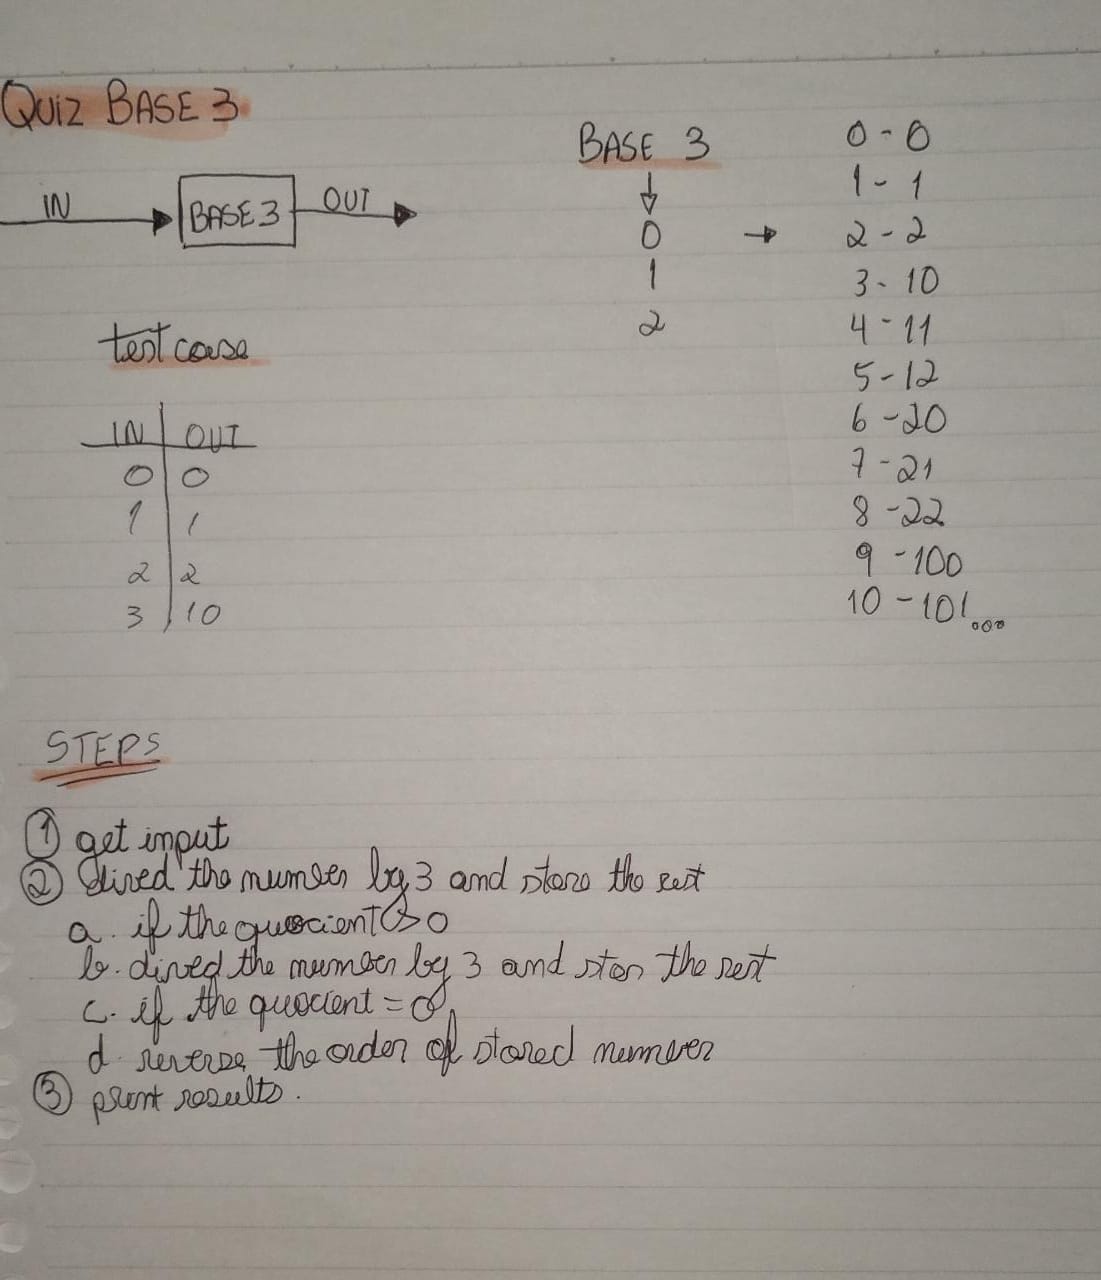 QUIZ BASE 3
IN
BASE 3
OUT
test case
IN OUT
0 0
1 1
2 2
3 10
BASE 3
0
1
2
0 - 0
1 - 1
2 - 2
3 - 10
4 - 11
5 - 12
6 - 20
7 - 21
8 - 22
9 - 100
10 - 101...
STEPS
1 get input
2 dived the number by 3 and store the rest
a. if the quocient > 0
b. dived the number by 3 and stor the rest
c. if the quocient = 0,
d. reverse the order of stored number
3 print results.